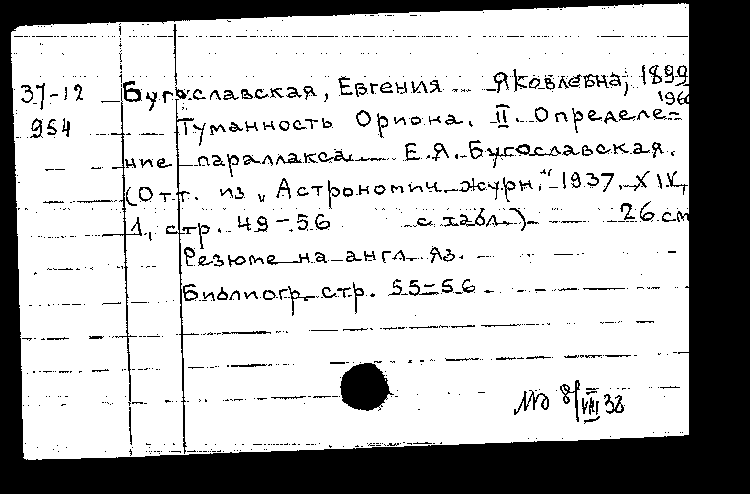 37-12 Бугославская, Евгения Яковлевна, 1899
1960
954 Туманность Ориона. II. Определе=
ние параллакса. Е.Я. Бугославская.
(Отт. из „Астрономич. журн." 1937. XIV,
1, стр. 49-56 с табл.). 26 см
Резюме на англ. яз.
Библиогр. стр. 55-56.
8/VIII 38